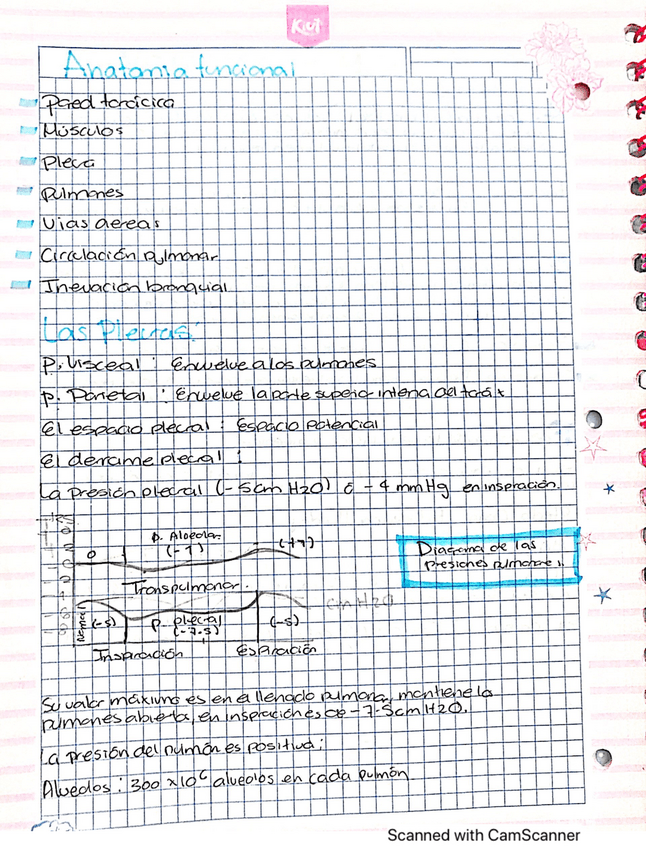 Kiut
Anatomia funcional
Pared torácica
Músculos
Pleura
Pulmones
Vias aereas
Circulación pulmonar
Inervación bronquial
Las Pleuras:
P. Visceral : Envuelve a los pulmones
P. Parietal : Envuelve la parte superior interna del torax
El espacio pleural : Espacio Potencial
El derrame pleural :
La Presión pleural (-5cm H2O) ó -4 mmHg en inspiración.
P. Alveolar
0 (-1) (+1)
Diagrama de las
presiones pulmonares.
Transpulmonar.
cm H2O
Normal (-5) P. pleural (-5)
(-7.5)
Inspiración Espiración
Su valor máximo es en el llenado pulmonar, mantiene los
pulmones abiertos, en inspiración es de -7.5cm H2O.
La presión del pulmón es positiva;
Alveolos : 300 x10⁶ alveolos en cada pulmón.
Scanned with CamScanner